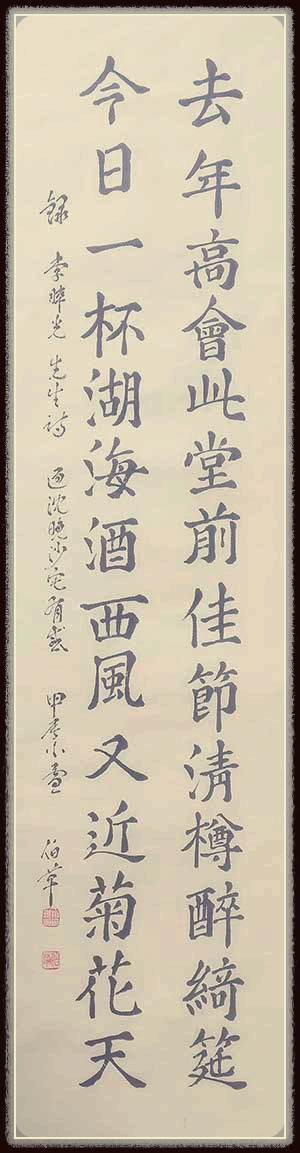 去年高會此堂前佳節清樽醉綺筵
今日一杯湖海酒西風又近菊花天
錄 李晬光 先生詩 過沈曉沙宅有感 甲 小雪 伯草